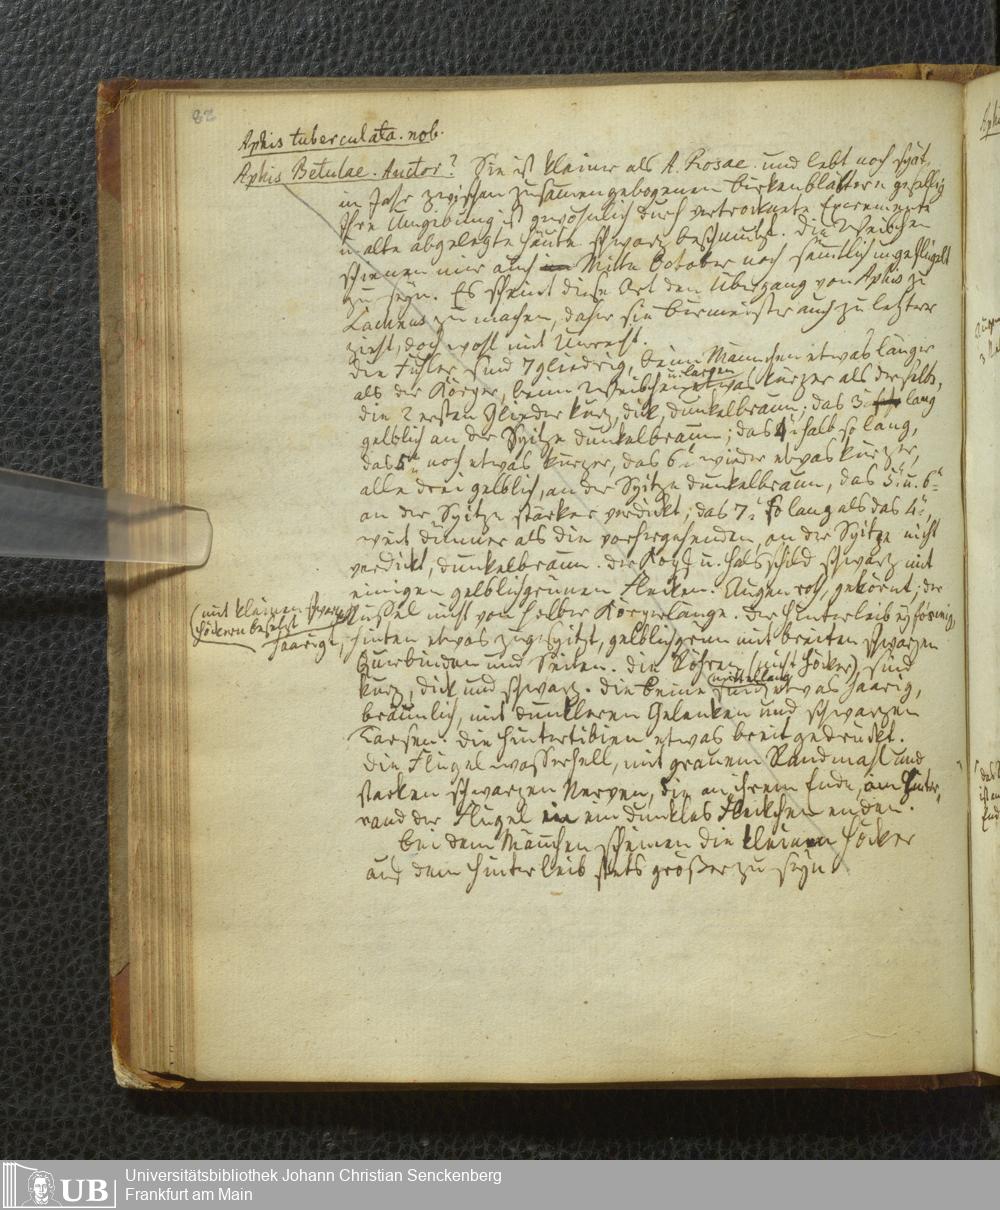 82
Aphis tuberculata. nob.
Aphis Betulae. Auctor? Sie ist kleiner als A. Rosae. und lebt noch spät
im Jahr zwischen zusamengebogenen Birkenblättern gesellig
Ihre Umgebung ist gewöhnlich durch vertrocknete Excremente
u. alte abgelegte Häute schwarz beschmutzt. Die Weibchen
schienen mir auch Mitte October noch sämtlich ungeflügelt
zu seyn. Es scheint diese Art den Übergang von Aphis zu
Lachnus zu machen, daher sie Burmeister auch zu letzterer
zieht, doch wohl mit Unrecht.
Die Fühler sind 7gliedrig, beim Männchen etwas länger
als der Körper, beim Weibchen etwas kürzer als derselbe,
u. Larven
die 2 ersten Glieder kurz, dick, dunkelbraun; das 3. lang
gelblich an der Spitze dunkelbraun; das 4. halb so lang,
das 5. noch etwas kürzer, das 6. wieder etwas kürzer,
alle drei gelblich, an der Spitze dunkelbraun, das 5. u. 6.
an der Spitze stärker verdickt; das 7. so lang als das 4.,
weit dünner als die vorhergehenden, an der Spitze nicht
verdickt, dunkelbraun. Der Kopf u. Halsschild schwarz mit
einigen gelblichgrünen Flecken. Augen rot, gekörnt; der
Rüssel nicht von halber Körperlänge. Der Hinterleib eyförmig,
(mit kleinen schwarzen
Höckern besetzt
haarigt, hinten etwas zugespitzt, gelblichgrün mit breiten schwarzen
Querbinden und Seiten. Die Röhren (nicht Höcker) sind
kurz, dick und schwarz. Die Beine sind etwas haarig,
mittellang
bräunlich, mit dunkleren Gelenken und schwarzen
Tarsen. Die Hintertibien etwas breit gedrückt.
Die Flügel wasserhell, mit grauem Randmahl und
starken schwarzen Nerven, die an ihrem Ende, am Hinter-
rand der Flügel in ein dunkles Fleckchen enden.
Bei dem Männchen scheinen die kleinen Höcker
auf dem Hinterleib stets größer zu seyn.
UB
Universitätsbibliothek Johann Christian Senckenberg
Frankfurt am Main